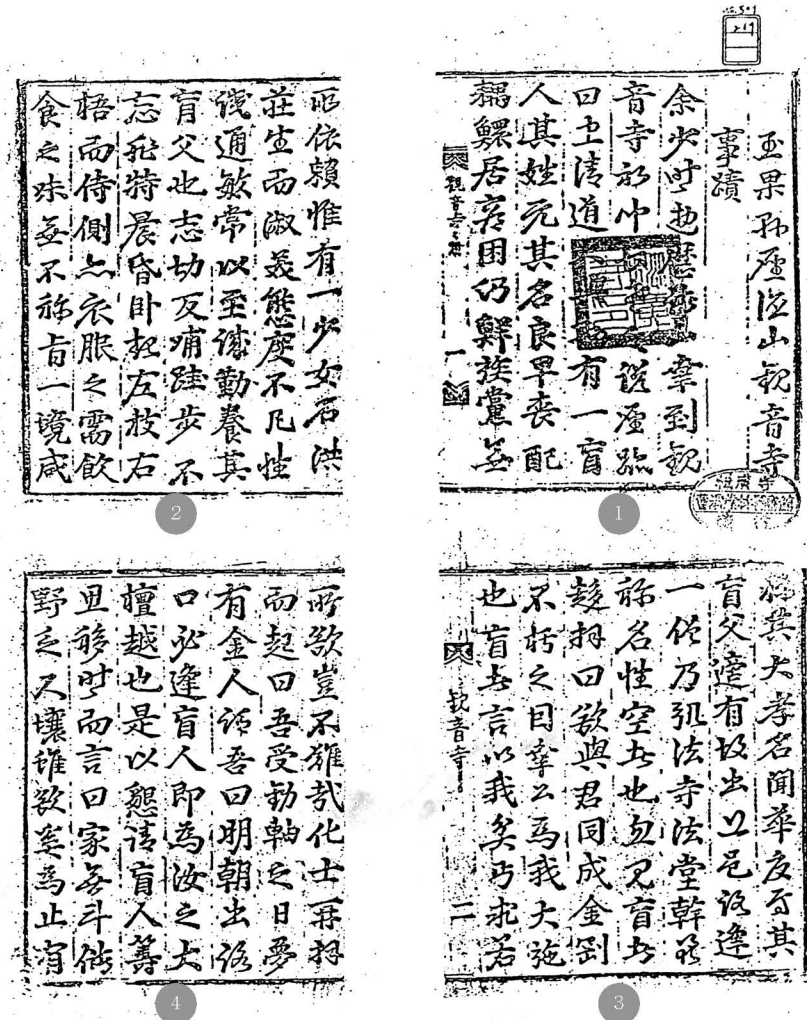 玉果 山觀音寺
事蹟
余少時遊歷 幸到觀
音寺
曰忠清道 有一盲
人其姓元其名良早喪配
耦鰥居窮困仍鮮族黨無
觀音寺 一
所依賴惟有一少女名洪
莊生而淑美態度不凡性
識通敏常以至誠勤養其
盲父也志切反哺跬步不
忘 特晨昏臥起左扶右
梧而侍側亦衣服之需飲
食之味無不称旨一境咸
2
1
称其大孝名聞華夏 其
盲父適有故出 邑路逢
一僧乃弘法寺法堂幹善
称名性空者也忽見盲者
趍拜曰欲與君同成金剛
不朽之因幸公為我大施
也盲者言以我矣丐求若
觀音寺 二
所欲豈不難哉化士再拜
而起曰吾受勸軸之日夢
有金人語吾曰明朝出路
口必逢盲人即為汝之大
檀越也是以懇請盲人籌
且移時而言曰家無斗儲
野乏尺壤雖欲 為止有
4
3